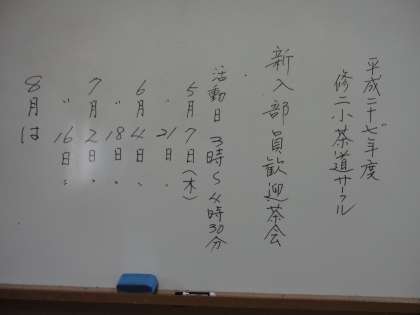 平成二十七年度
修二小茶道サークル
新入部員歓迎茶会
活動日 3時〜4時30分
5月7日(木)
〃 21日〃
6月4日〃
〃 18日〃
7月2日〃
〃 16日〃
8月は